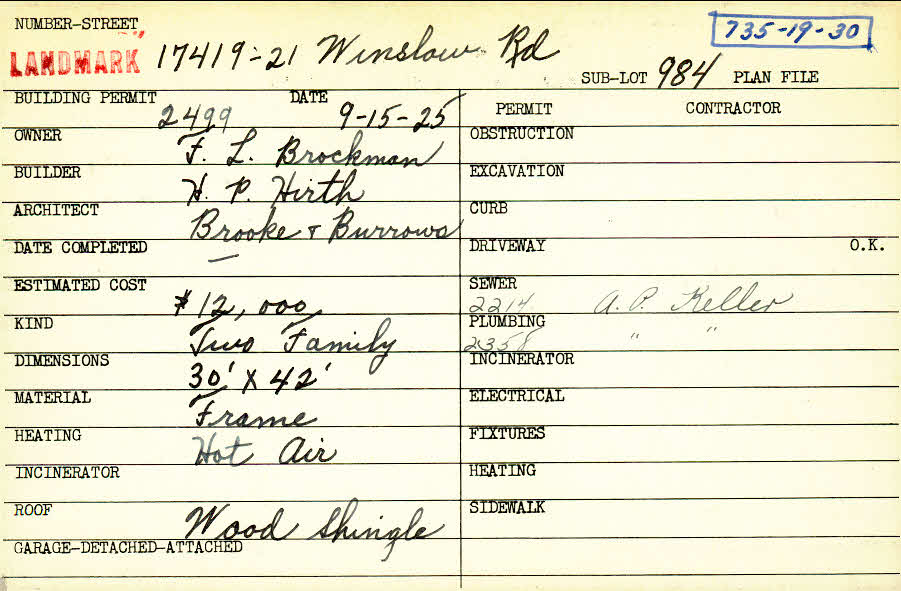 NUMBER-STREET
735-19-30
LANDMARK 17419-21 Winslow Rd
SUB-LOT 984 PLAN FILE
BUILDING PERMIT 2499 DATE 9-15-25
PERMIT CONTRACTOR
OWNER F. L. Brockman
OBSTRUCTION
BUILDER H. P. Hirth
EXCAVATION
ARCHITECT Brooke & Burrows
CURB
DATE COMPLETED —
DRIVEWAY O.K.
ESTIMATED COST $12,000
SEWER 2214 A. P. Keller
KIND Two Family
PLUMBING 2358 " "
DIMENSIONS 30' X 42'
INCINERATOR
MATERIAL Frame
ELECTRICAL
HEATING Hot Air
FIXTURES
INCINERATOR
HEATING
ROOF Wood Shingle
SIDEWALK
GARAGE-DETACHED-ATTACHED